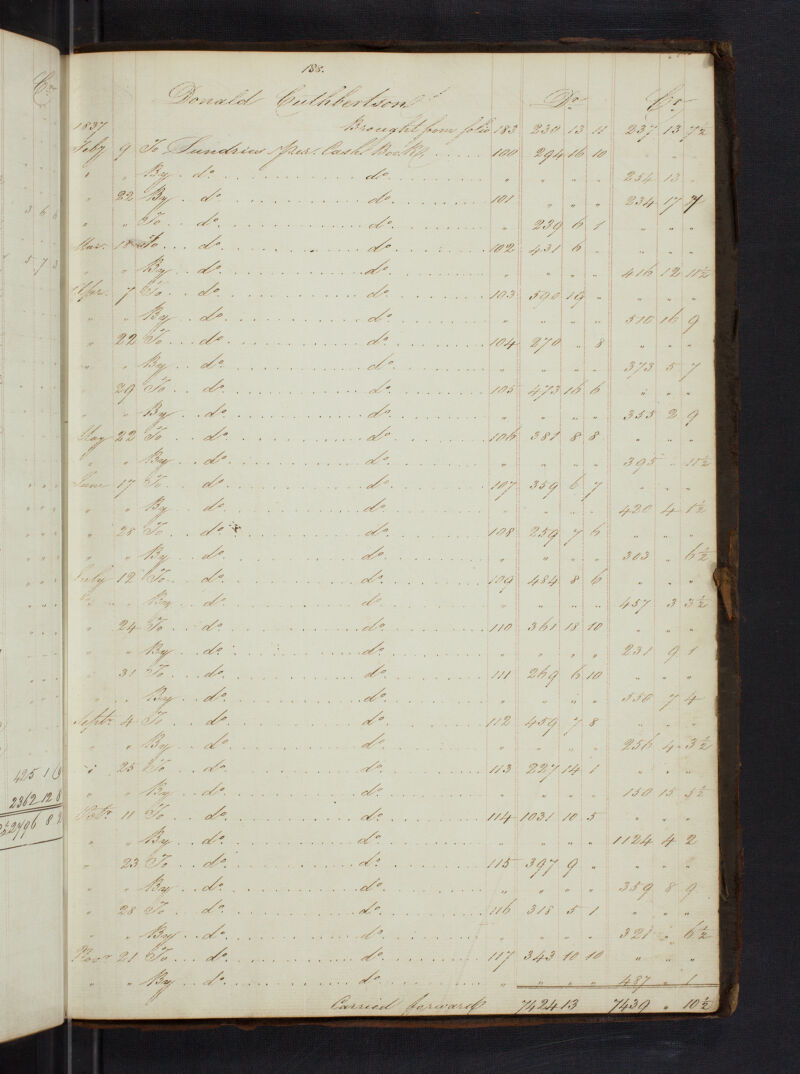 Cr
3 6 6
5 7 3
425 1
2362 12 8
2796 8 2
188.
Donald Cuthbertson Dr Cr
1837 Brought from folio 183 230 13 11 237 13 7½
Feby 9 To Sundries per Cash Book 100 294 16 10
" " By do do " " " " 254 13 "
" 22 By do do 101 " " " 234 17 7
" " To do do " 239 6 1 " " "
Mar. 18 To do do 102 431 6 " " " "
" " By do do " " " " 416 12 11½
Apr. 7 To do do 103 590 19 " " " "
" " By do do " " " " 510 16 9
" 22 To do do 104 270 " 8 " " "
" " By do do " " " " 373 5 7
" 29 To do do 105 473 16 6 " " "
" " By do do " " " " 355 2 9
May 22 To do do 106 381 8 8 " " "
" " By do do " " " " 395 " 11½
June 17 To do do 107 359 6 7 " " "
" " By do do " " " " 420 4 1½
" 28 To do do 108 259 7 6 " " "
" " By do do " " " " 303 " 6½
July 12 To do do 109 484 8 6 " " "
" " By do do " " " " 457 3 3½
" 24 To do do 110 361 18 10 " " "
" " By do do " " " " 231 9 1
" 31 To do do 111 269 6 10 " " "
" " By do do " " " " 550 7 4
Septr 4 To do do 112 459 7 8 " " "
" " By do do " " " " 256 4 3½
" 25 To do do 113 227 14 1 " " "
" " By do do " " " " 150 15 5½
Octr 11 To do do 114 1031 10 5 " " "
" " By do do " " " " 1124 4 2
" 23 To do do 115 397 9 " " " "
" " By do do " " " " 359 8 9
" 28 To do do 116 318 5 1 " " "
" " By do do " " " " 321 " 6½
Novr 21 To do do 117 343 10 10 " " "
" " By do do " " " " 487 " 1
Carried forward 7424 13 7439 " 10½